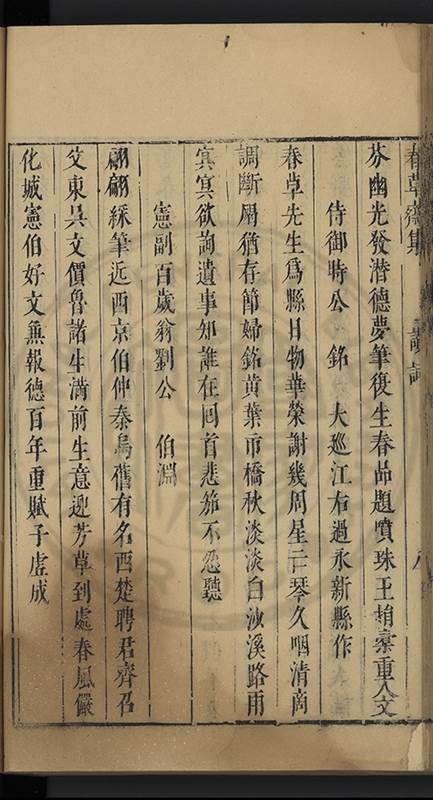 春草齋集
芬幽光發潛德夢筆復生春品題噴珠玉掞橐重人文
侍御時公 銘 大巡江右過永新縣作
春草先生為縣日物華榮謝幾周星云琴久咽清商
調斷碣猶存節婦銘黃葉市橋秋淡淡白沙溪路雨
冥冥欲詢遺事知誰在回首悲笳不忍聽
憲副百歲翁劉公 伯淵
翩翩綵筆近西京伯仲秦烏舊有名西楚聘君齊召
父東吳文價魯諸生滿前生意迎芳草到處春風儼
化城憲伯好文無報德百年重賦子虛成